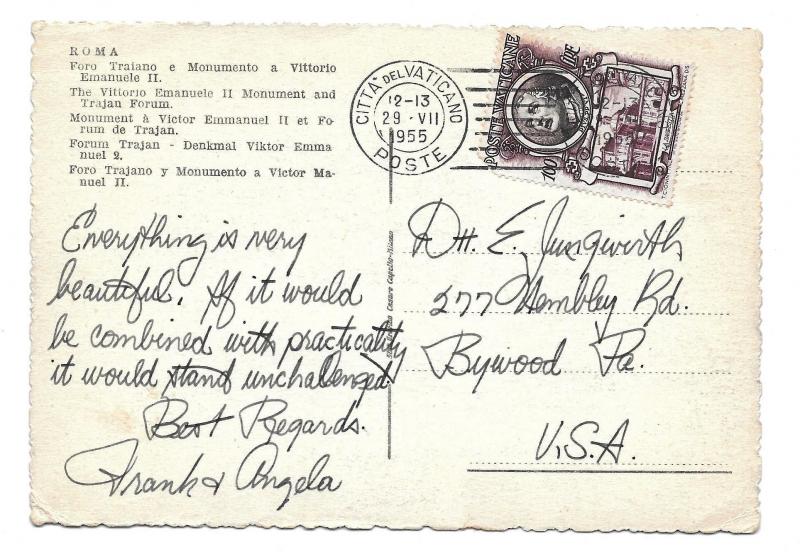 ROMA
Foro Traiano e Monumento a Vittorio
Emanuele II.
The Vittorio Emanuele II Monument and
Trajan Forum.
Monument à Victor Emmanuel II et Fo-
rum de Trajan.
Forum Trajan - Denkmal Viktor Emma
nuel 2.
Foro Trajano y Monumento a Victor Ma-
nuel II.
CITTA' DEL VATICANO
12-13
29·VII
1955
POSTE
POSTE VATICANE
100
Everything is very
beautiful. If it would
be combined with practicality
it would stand unchallenged.
Best Regards.
Frank & Angela
Cesare Capello-Milano
E. Jungwirth
277 Wembley Rd.
Bywood Pa.
U.S.A.